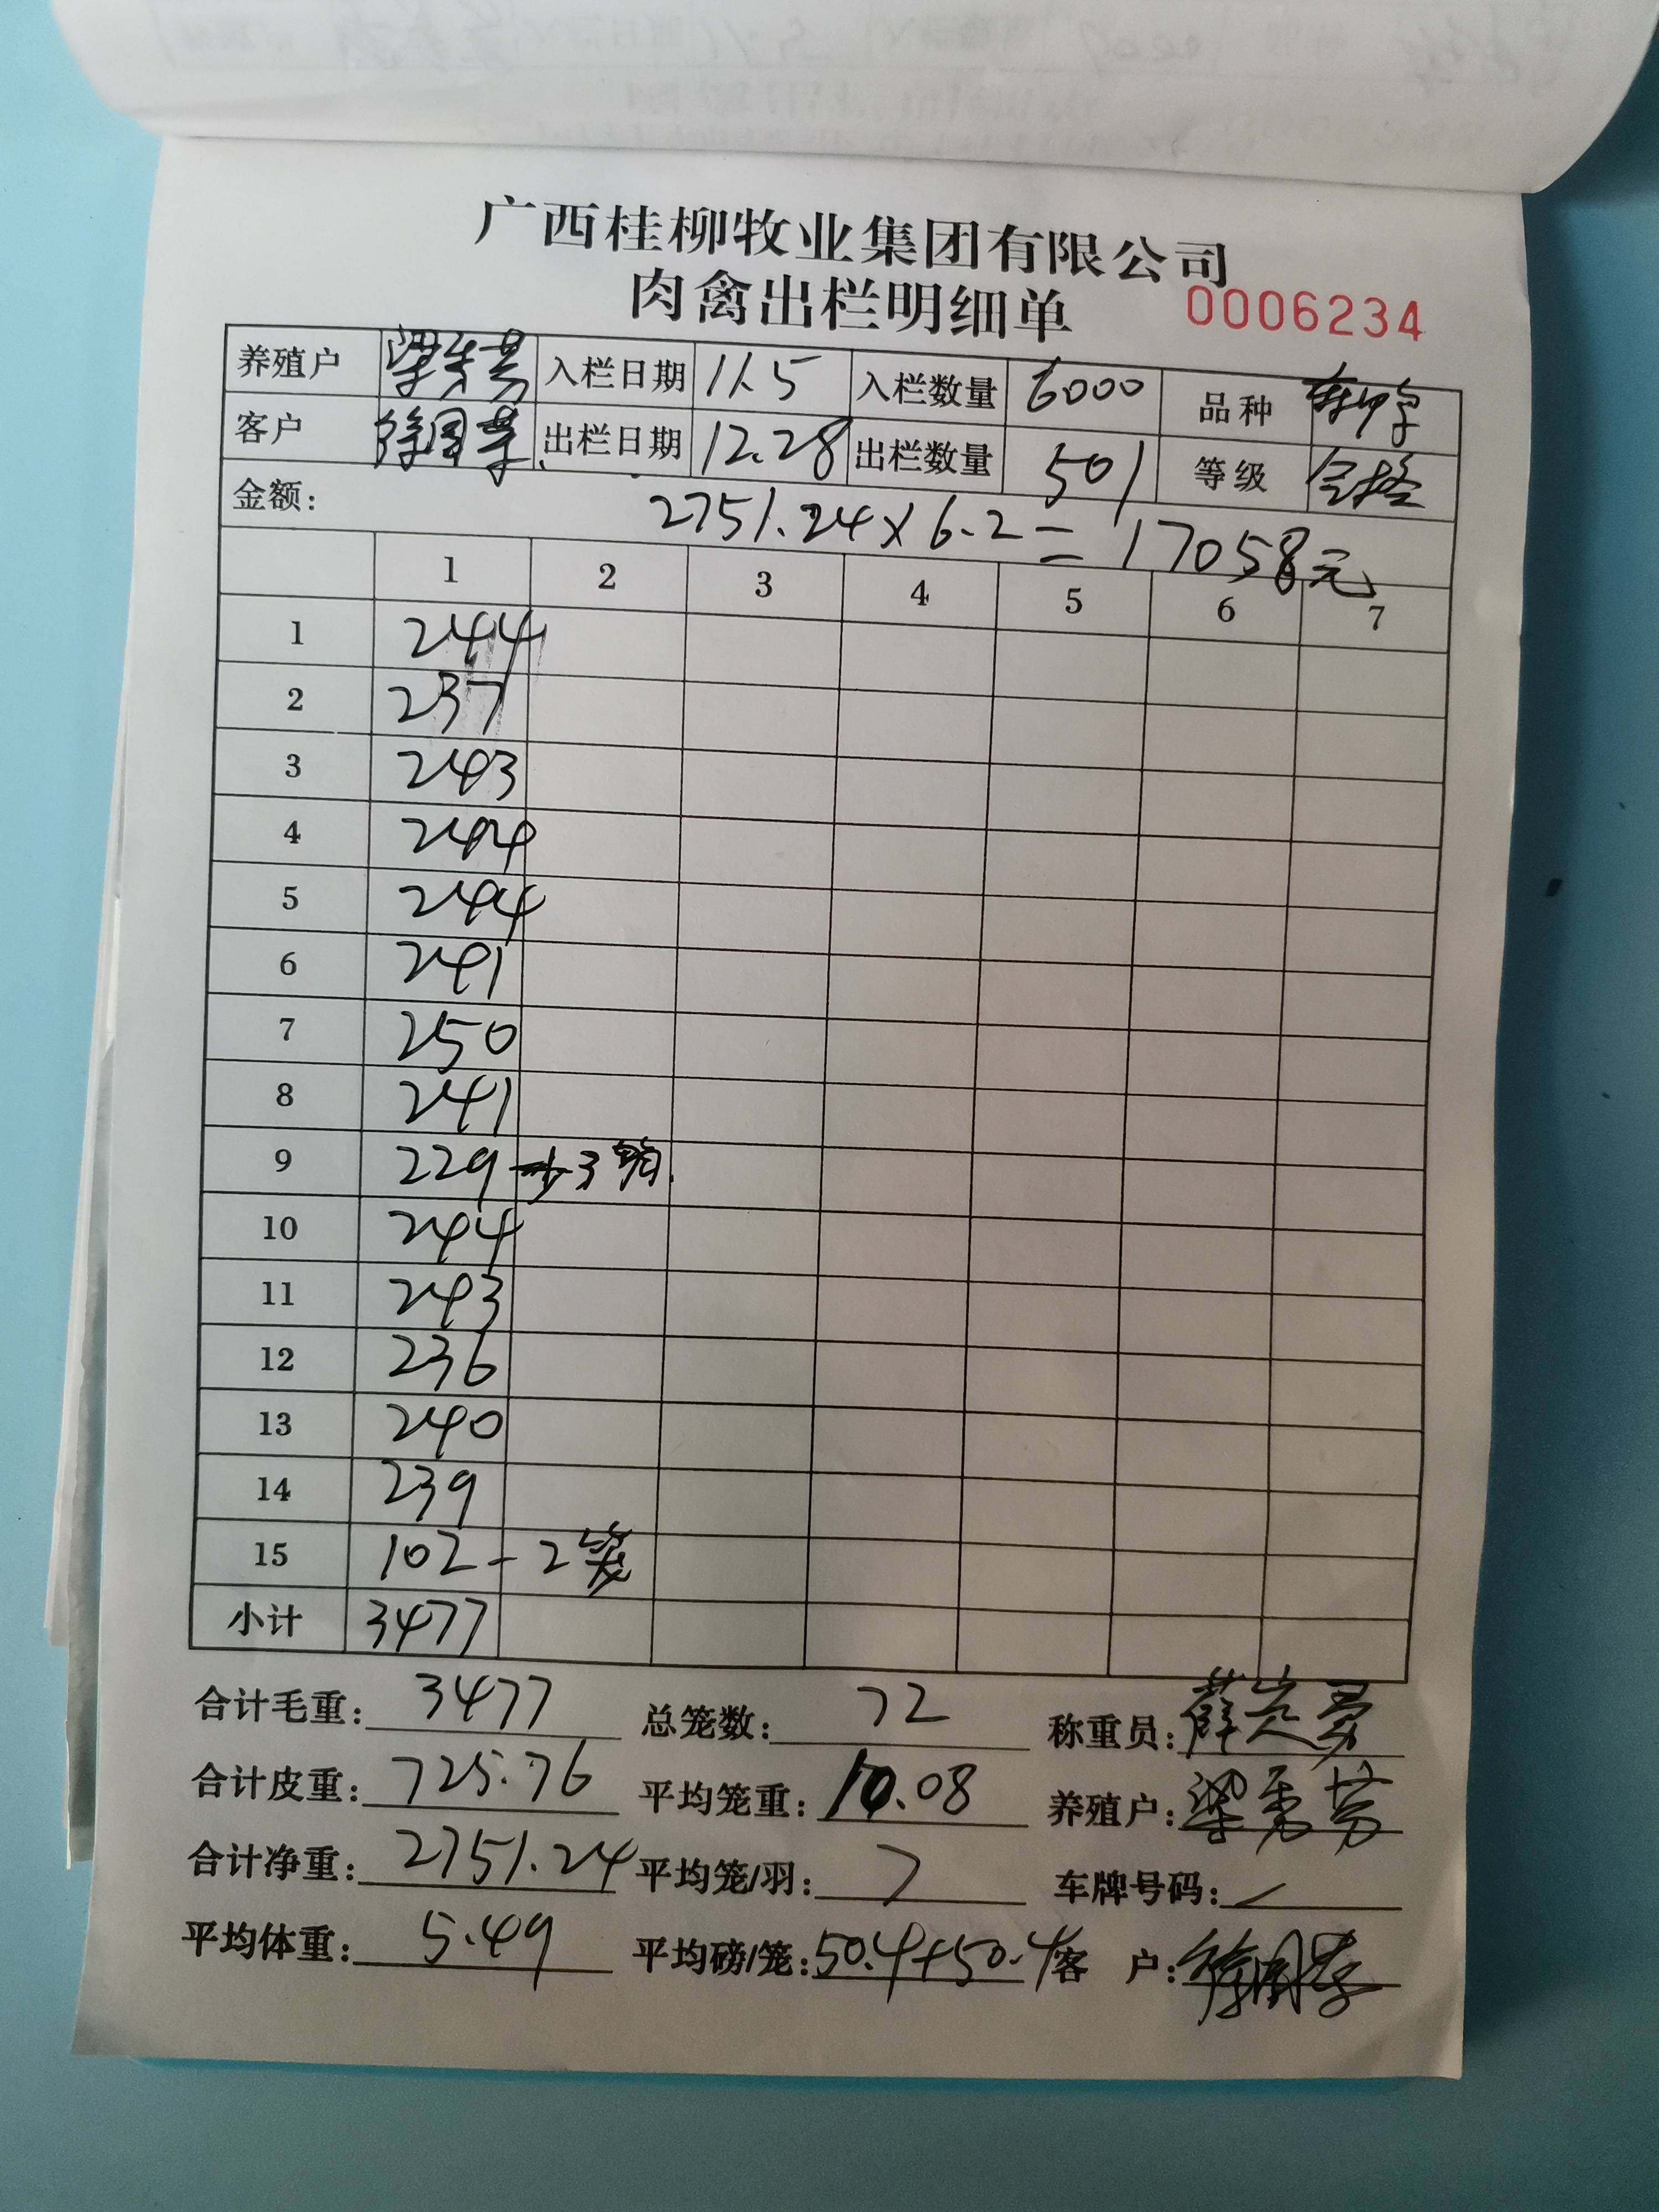 广西桂柳牧业集团有限公司
肉禽出栏明细单 0006234
养殖户 梁秀芳 入栏日期 11.5 入栏数量 6000 品种
客户 出栏日期 12.28 出栏数量 501 等级 合格
金额: 2751.24×6.2=17058元
1 2 3 4 5 6 7
1 244
2 237
3 243
4 244
5 244
6 241
7 250
8 241
9 229 少3鸭
10 244
11 243
12 236
13 240
14 239
15 102-2笼
小计 3477
合计毛重: 3477 总笼数: 72 称重员: 薛定勇
合计皮重: 725.76 平均笼重: 10.08 养殖户: 梁秀芳
合计净重: 2751.24 平均笼/羽: 7 车牌号码: /
平均体重: 5.49 平均磅/笼: 50.4+50.4 客 户: